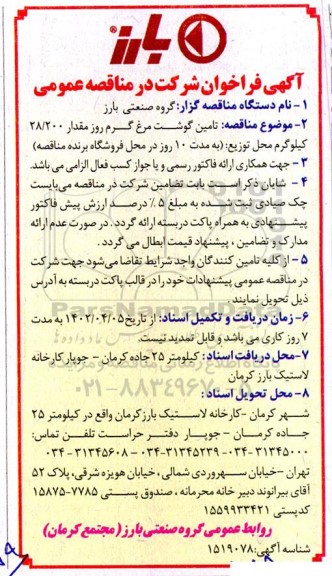 بارز
آگهی فراخوان شرکت در مناقصه عمومی
۱- نام دستگاه مناقصه گزار: گروه صنعتی بارز
۲- موضوع مناقصه: تامین گوشت مرغ گرم روز مقدار ۲۸/۲۰۰
کیلوگرم محل توزیع: (به مدت ۱۰ روز در محل فروشگاه برنده مناقصه)
۳- جهت همکاری ارائه فاکتور رسمی و یا جواز کسب فعال الزامی می باشد.
۴- شایان ذکر است بابت تضامین شرکت در مناقصه می‌بایست
چک صیادی ثبت شده به مبلغ ۵٪ درصد ارزش پیش فاکتور
پیشنهادی به همراه پاکت دربسته ارائه گردد. در صورت عدم ارائه
مدارک و تضامین، پیشنهاد قیمت ابطال می گردد.
۵- از کلیه تامین کنندگان واجد شرایط تقاضا می‌شود جهت شرکت
در مناقصه عمومی پیشنهادات خود را در قالب پاکت دربسته به آدرس
ذیل تحویل نمایند.
۶- زمان دریافت و تکمیل اسناد: از تاریخ ۱۴۰۲/۰۴/۰۵ به مدت
۷ روز کاری می باشد و قابل تمدید نیست.
۷- محل دریافت اسناد: کیلومتر ۲۵ جاده کرمان - جوپار کارخانه
لاستیک بارز کرمان
۸- محل تحویل اسناد:
شهر کرمان - کارخانه لاستیک بارز کرمان واقع در کیلومتر ۲۵
جاده کرمان - جوپار دفتر حراست تلفن تماس:
۰۳۴-۳۱۳۴۵۰۰۰ - ۰۳۴-۳۱۳۴۵۲۳۹ - ۰۳۴-۳۱۳۴۵۶۰۸
تهران - خیابان سهروردی شمالی، خیابان هویزه شرقی، پلاک ۵۲
آقای بیرانوند دبیر خانه محرمانه، صندوق پستی ۷۷۸۵-۱۵۸۷۵
کدپستی ۱۵۵۹۹۳۳۴۲۱
روابط عمومی گروه صنعتی بارز (مجتمع کرمان)
شناسه آگهی: ۱۵۱۹۰۷۸
۰۲۱-۸۸۳۴۹۶۷۰